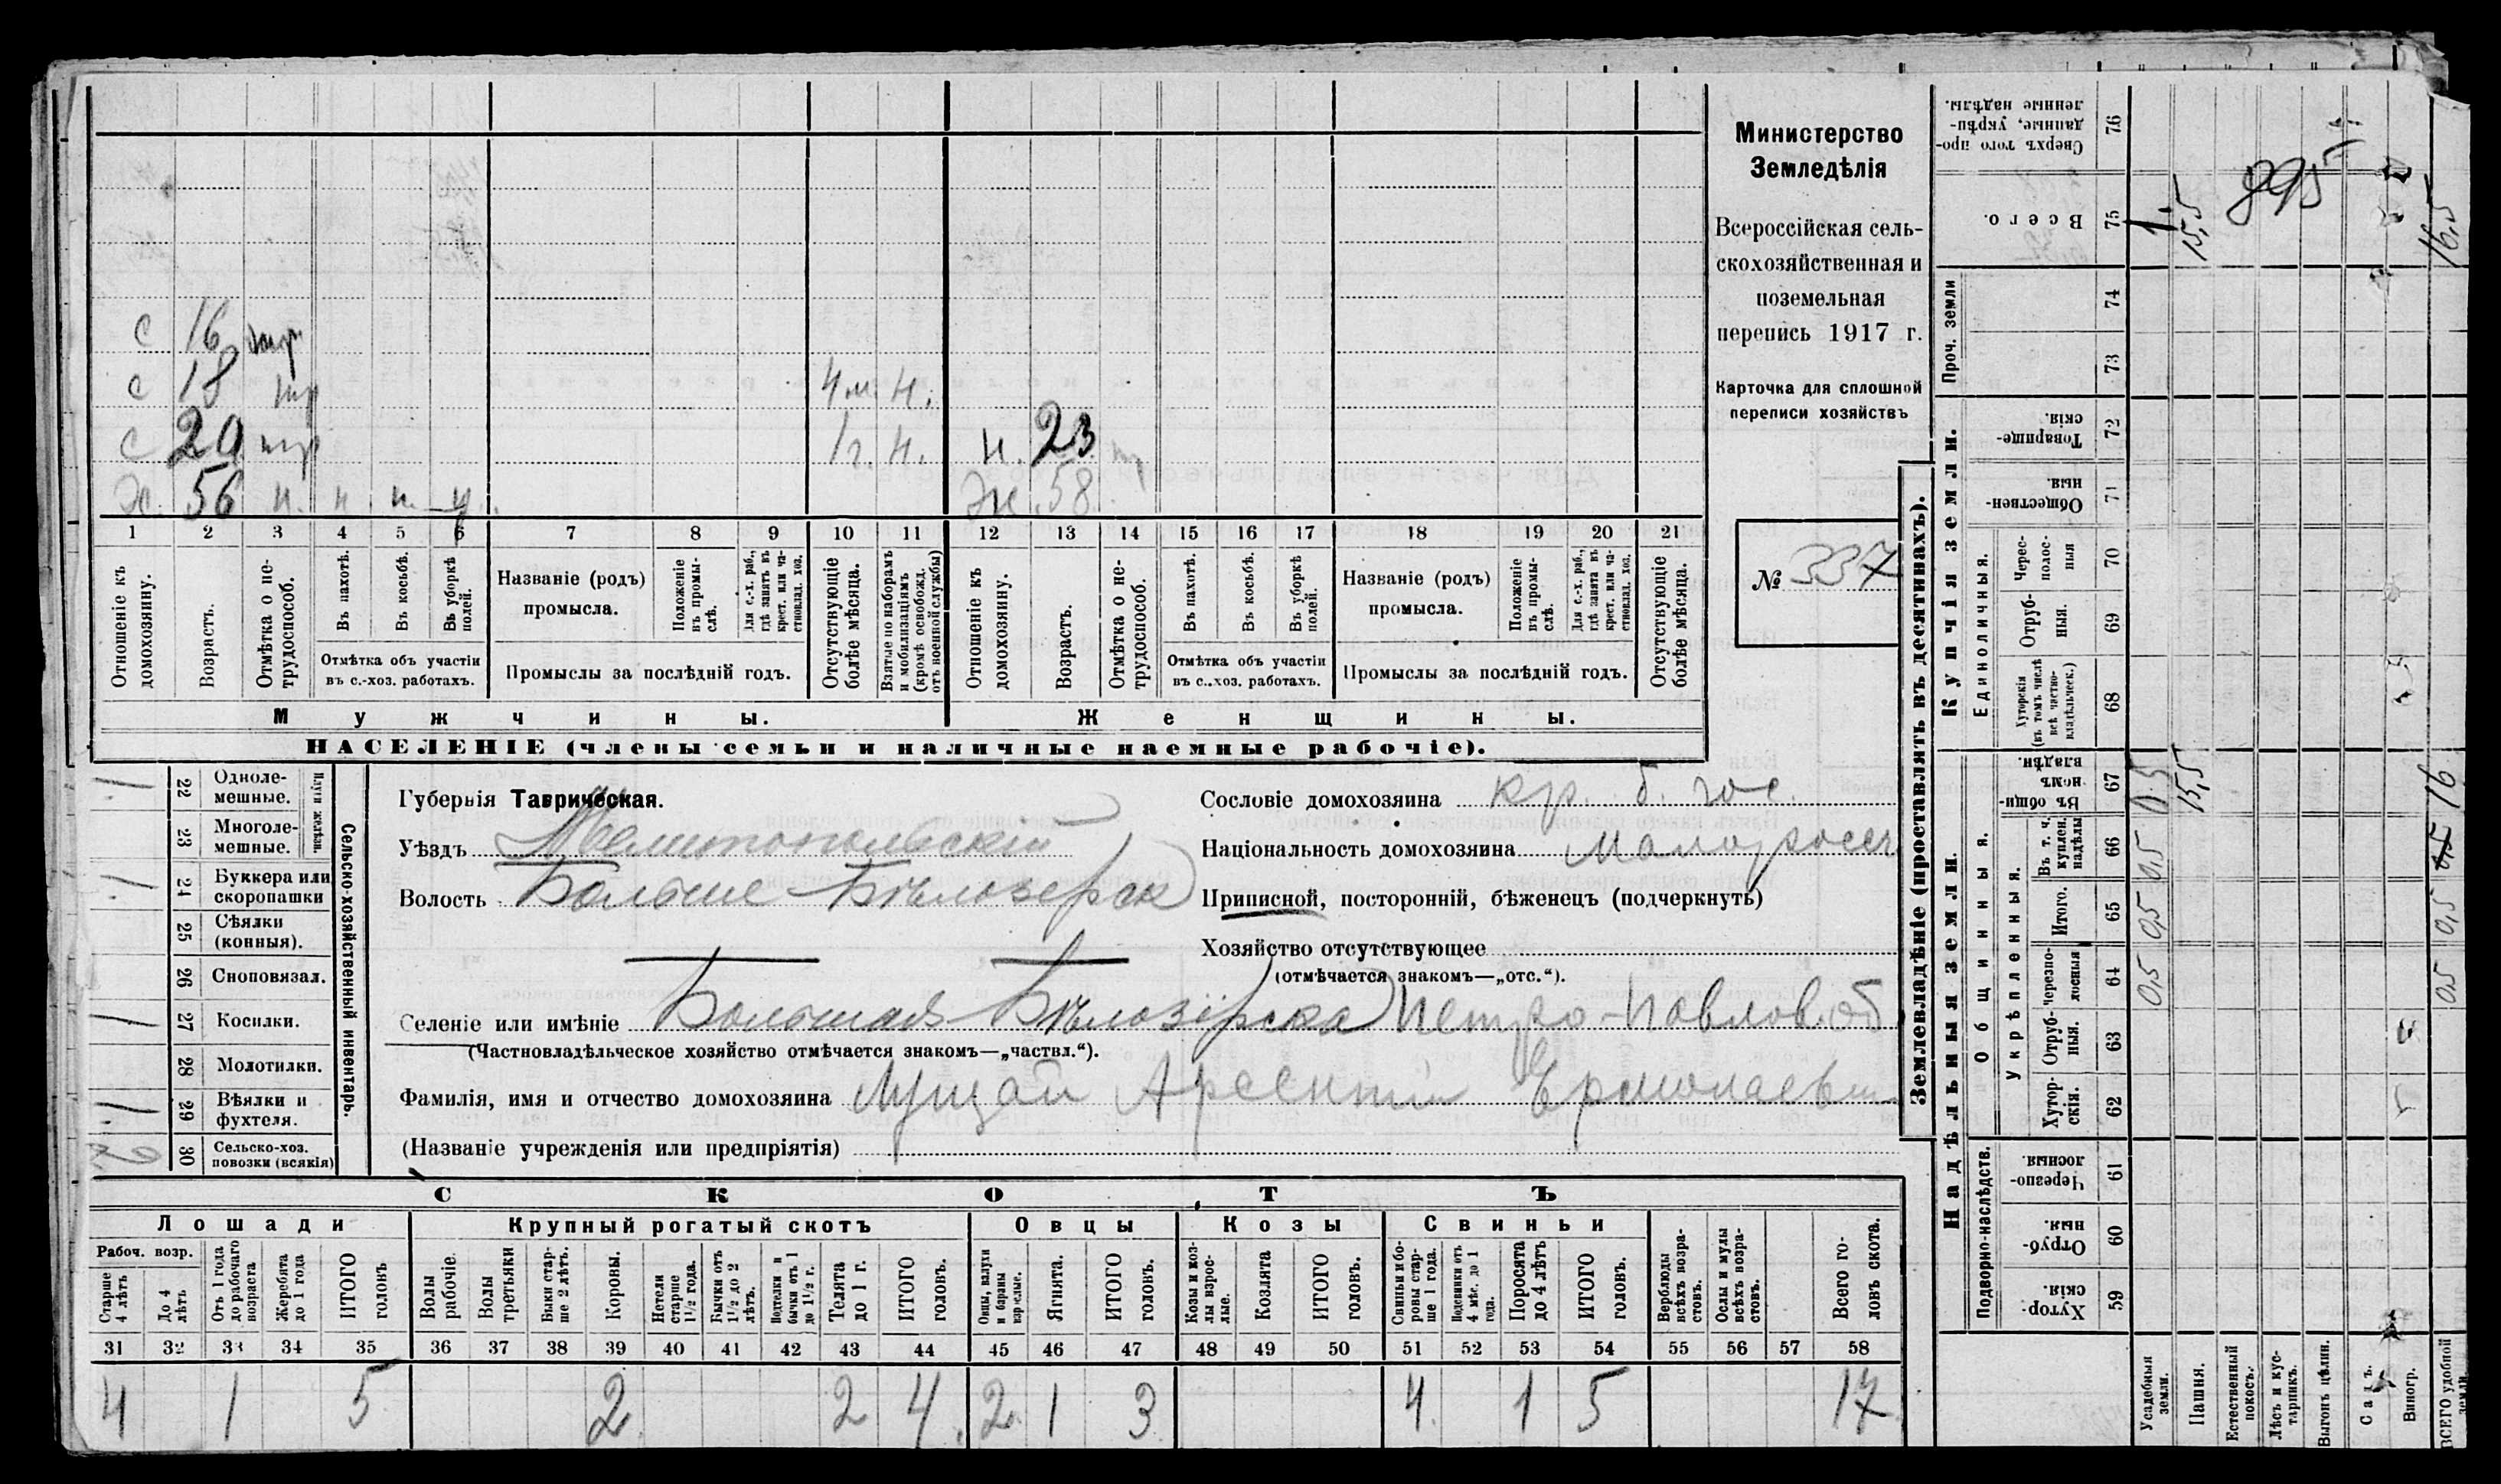 с 16 тр.
с 18 тр 4 м. н.
с 20 тр 1 г. н. н. 23
Х. 56 н. н. н. н. Ж. 58
1 2 3 4 5 6 7 8 9 10 11 12 13 14 15 16 17 18 19 20 21
Отношеніе къ домохозяину.
Возрастъ.
Отмѣтка о не-трудоспособ.
Въ пахотѣ.
Въ косьбѣ.
Въ уборкѣ полей.
Отмѣтка объ участіи
въ с.-хоз. работахъ.
Названіе (родъ)
промысла.
Положеніе въ промы-слѣ.
Для с.-х. раб., гдѣ занятъ въ крест. или ча-стновлад. хоз.
Промыслы за послѣдній годъ.
Отсутствующіе болѣе мѣсяца.
Взятые по наборамъ и мобилизаціямъ (кромѣ освобожд. отъ военной службы)
Отношеніе къ домохозяину.
Возрастъ.
Отмѣтка о не-трудоспособ.
Въ пахотѣ.
Въ косьбѣ.
Въ уборкѣ полей.
Отмѣтка объ участіи
въ с..хоз. работахъ.
Названіе (родъ)
промысла.
Положеніе въ промы-слѣ.
Для с.-х. раб., гдѣ занята въ крест. или ча-стновлад. хоз.
Промыслы за послѣдній годъ.
Отсутствующіе болѣе мѣсяца.
Мужчины.
Женщины.
НАСЕЛЕНІЕ (члены семьи и наличные наемные рабочіе).
Министерство
Земледѣлія
Всероссійская сель-
скохозяйственная и
поземельная
перепись 1917 г.
Карточка для сплошной
переписи хозяйствъ
№ 337
Сельско-хозяйственный инвентарь.
Плуги желѣзн.
1 22 Одноле-мешные.
23 Многоле-мешные.
1 24 Буккера или скоропашки
25 Сѣялки (конныя).
26 Сноповязал.
1 27 Косилки.
28 Молотилки.
1 29 Вѣялки и фухтеля.
2 30 Сельско-хоз. повозки (всякія)
Губернія Таврическая.
Уѣздъ Мелитопольскій
Волость Больше-Бѣлозерск
Селеніе или имѣніе Большая Бѣлозірска Петро-Павлов. об
(Частновладѣльческое хозяйство отмѣчается знакомъ—„частвл.“).
Фамилія, имя и отчество домохозяина Лущай Арсентій Ермолаев
(Названіе учрежденія или предпріятія)
Сословіе домохозяина кр. б. гос.
Національность домохозяина малоросс
Приписной, посторонній, бѣженецъ (подчеркнуть)
Хозяйство отсутствующее
(отмѣчается знакомъ—„отс.“).
СКОТЪ
Лошади
Крупный рогатый скотъ
Овцы
Козы
Свиньи
Рабоч. возр.
Старше 4 лѣтъ
До 4 лѣтъ
Отъ 1 года до рабочаго возраста
Жеребята до 1 года
ИТОГО головъ
Волы рабочіе.
Волы третьяки
Быки стар-ше 2 лѣтъ.
Коровы.
Нетели старше 1½ года.
Бычки отъ 1½ до 2 лѣтъ.
Подтелки и бычки отъ 1 до 1½ г.
Телята до 1 г.
ИТОГО головъ.
Овцы, валухи и бараны взрослые.
Ягнята.
ИТОГО головъ.
Козы и коз-лы взрос-лые.
Козлята
ИТОГО головъ.
Свиньи и бо-ровы стар-ше 1 года.
Подсвинки отъ 4 мѣс. до 1 года.
Поросята до 4 лѣтъ
ИТОГО головъ.
Верблюды всѣхъ возра-стовъ.
Ослы и мулы всѣхъ возра-стовъ.
Всего го-ловъ скота.
31 32 33 34 35 36 37 38 39 40 41 42 43 44 45 46 47 48 49 50 51 52 53 54 55 56 57 58
4 1 5 2 2 4. 2 1 3 4. 1 5 17
Землевладѣніе (проставлять въ десятинахъ).
Надѣльныя земли.
Купчія земли.
Проч. земли
Подворно-наслѣдств.
Общинныя.
Укрѣпленныя.
Единоличныя.
59 Хутор-скія.
60 Отруб-ныя.
61 Черезпо-лосныя.
62 Хутор-скія.
63 Отруб-ныя.
64 Черезпо-лосныя
65 Итого.
66 Въ т. ч. куплен. надѣлы
67 Въ общин-номъ владѣн.
68 Хуторскія (въ томъ числѣ всѣ частно-владѣльческ.)
69 Отруб-ныя.
70 Черес-полос-ныя
71 Обществен-ныя.
72 Товарище-скія.
73
74
75 Всего.
76 Сверхъ того про-данные, укрѣп-ленные надѣлы.
Усадебныя земли.
Пашня.
Естественный покосъ.
Лѣсъ и кус-тарникъ.
Выгонъ цѣлин.
Садъ.
Виногр.
ВСЕГО удобной земли.
0,5 0,5 0,5 0,5 1.
15,5 15,5
895
0,5 0,5 0,5 16 16,5